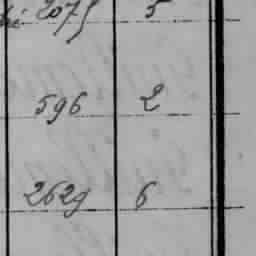 2075 5
596 2
2629 6